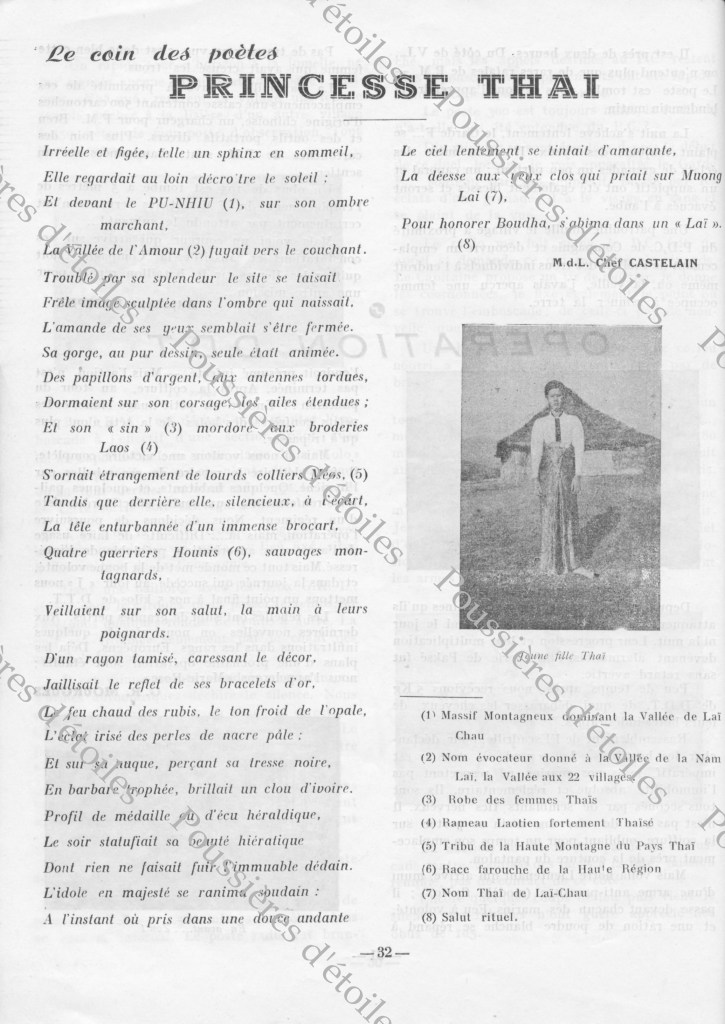 Le coin des poètes
PRINCESSE THAI
Irréelle et figée, telle un sphinx en sommeil,
Elle regardait au loin décroître le soleil :
Et devant le PU-NHIU (1), sur son ombre
marchant,
La Vallée de l'Amour (2) fuyait vers le couchant.
Troublé par sa splendeur le site se taisait
Frêle image sculptée dans l'ombre qui naissait,
L'amande de ses yeux semblait s'être fermée.
Sa gorge, au pur dessin, seule était animée.
Des papillons d'argent, aux antennes tordues,
Dormaient sur son corsage, les ailes étendues ;
Et son « sin » (3) mordore aux broderies
Laos (4)
S'ornait étrangement de lourds colliers Méos, (5)
Tandis que derrière elle, silencieux, à l'écart,
La tête enturbannée d'un immense brocart,
Quatre guerriers Hounis (6), sauvages mon-
tagnards,
Veillaient sur son salut, la main à leurs
poignards.
D'un rayon tamisé, caressant le décor,
Jaillisait le reflet de ses bracelets d'or,
Le feu chaud des rubis, le ton froid de l'opale,
L'éclat irisé des perles de nacre pâle :
Et sur sa nuque, perçant sa tresse noire,
En barbare trophée, brillait un clou d'ivoire.
Profil de médaille ou d'écu héraldique,
Le soir statufiait sa beauté hiératique
Dont rien ne faisait fuir l'immuable dédain.
L'idole en majesté se ranima soudain :
A l'instant où pris dans une douce andante
Le ciel lentement se tintait d'amarante,
La déesse aux yeux clos qui priait sur Muong
Laï (7),
Pour honorer Boudha, s'abima dans un « Laï ».
(8)
M.d.L. Chef CASTELAIN
Jeune fille Thaï
(1) Massif Montagneux dominant la Vallée de Laï
Chau
(2) Nom évocateur donné à la Vallée de la Nam
Laï, la Vallée aux 22 villages
(3) Robe des femmes Thaïs
(4) Rameau Laotien fortement Thaïsé
(5) Tribu de la Haute Montagne du Pays Thaï
(6) Race farouche de la Haute Région
(7) Nom Thaï de Laï-Chau
(8) Salut rituel.
— 32 —
Poussières d'étoiles
Poussières d'étoiles
Poussières d'étoiles
Poussières d'étoiles
Poussières d'étoiles
Poussières d'étoiles
Poussières d'étoiles
Poussières d'étoiles